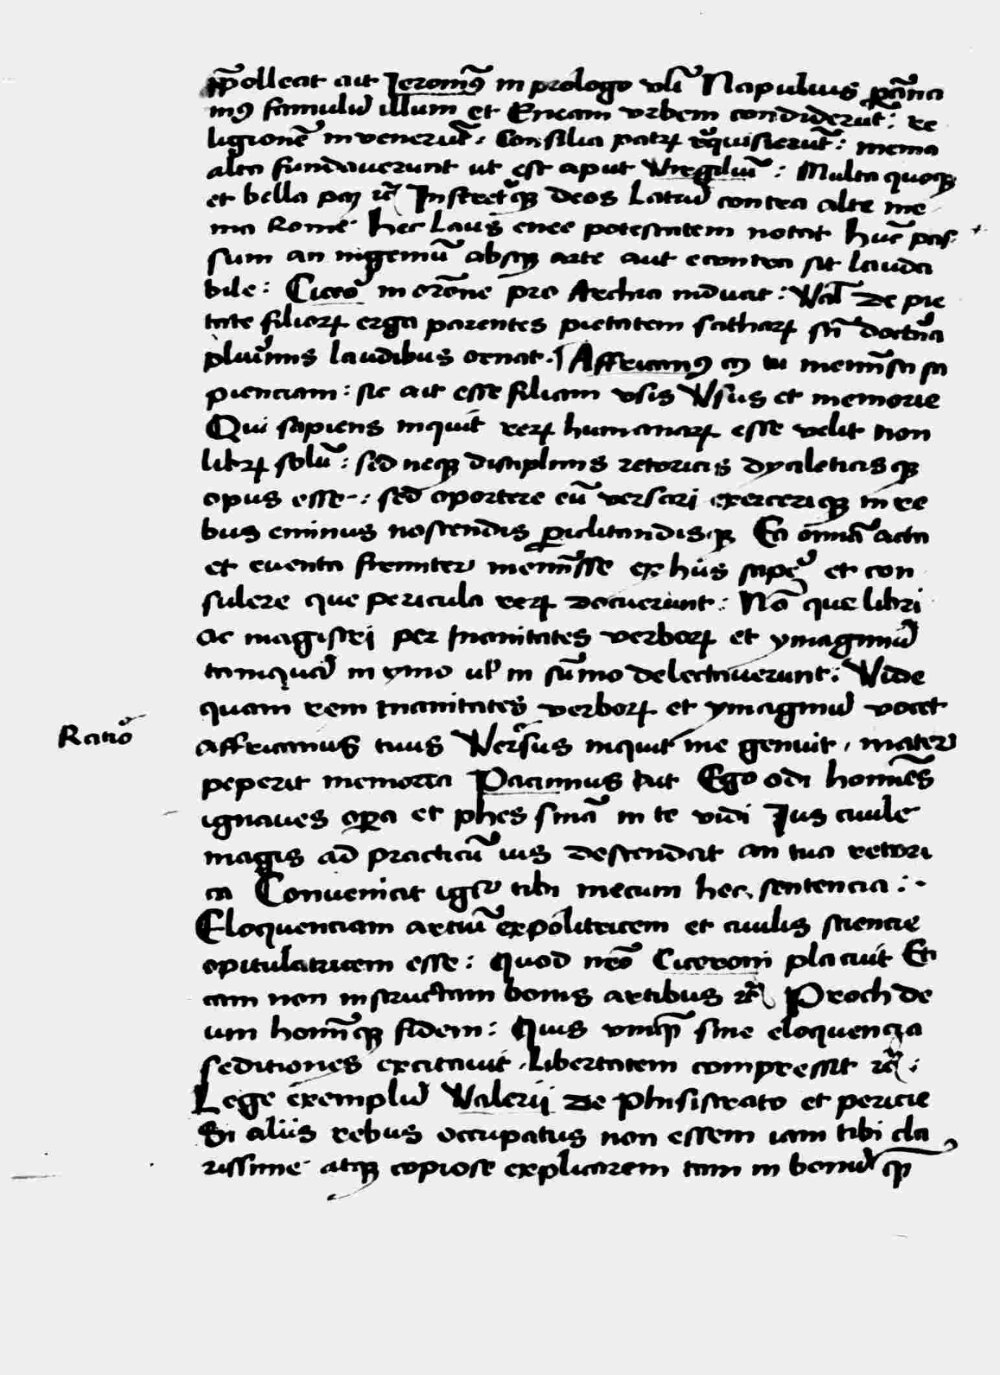 polleat ait Jeronimꝰ in prologo vl̄i Napulius
mꝰ famuliū illum et Eneam vrbem condiderūt: re
ligionē invenerūt. Consilia patrꝝ requisierūt: menia
alta fundaverunt ut est aput Virgiliū: Multa quoqꝫ
et bella ⁊c̄ Inferretqꝫ deos Latiū contra alte me
nia Rome hec Laus enee potestatem notat huc̄ pas
sum an ingeniū absqꝫ arte aut econtra sit lauda
bile: Cicero in orōne pro Archia induat: Val̄ de pie
tate filiorꝝ erga parentes pietatem
plurimis laudibus ornat. Affricanꝰ tu memīsti sa
pienciam: sic ait esse filiam vsis Vsus et memorie
Qui sapiens inquit rerꝝ humanarꝝ esse velit non
librꝝ solū: sed neqꝫ disciplinis retoricis dyaleticisqꝫ
opus esse: sed oportere eū versari exerceriqꝫ in re
bus eminus noscendis ꝑiclitandisqꝫ Ea omīa acta
et eventa frequenter memīsse ex hiis et con
sulere que pericula rerꝝ docuerunt: Nō que libri
ac magistri per Inanitates verborꝝ et ymaginū
tamquā in ymo ul̄ in sūmo delectaverunt: Vide
quam rem Inanitates verborꝝ et ymaginū vocet
Ratiō
affricanus tuus Versus inquit me genuit, mater
peperit memoria Pacuuius Ego odi homīes
ignaves oꝑa et phēs in te vidi Jus ciuile
magis ad practicū ius descendat an tua retori
ca Conveniat igit̄ tibi mecum hec sentencia:
Eloquenciam artiū expolitricem et ciuilis sciencie
opitulatricem esse: quod nrō Ciceroni placuit Et
tam non instructam bonis artibus ⁊c̄ Proch de
um homīqꝫ fidem: Quis vnqꝫ sine eloquencia
seditiones excitavit. Libertatem compressit ⁊c̄:
Lege exemplū Valerii de phisistrato et pericle
Si aliis rebus occupatus non essem iam tibi cla
rissime atqꝫ copiose explicarem tam in bonū qꝫ